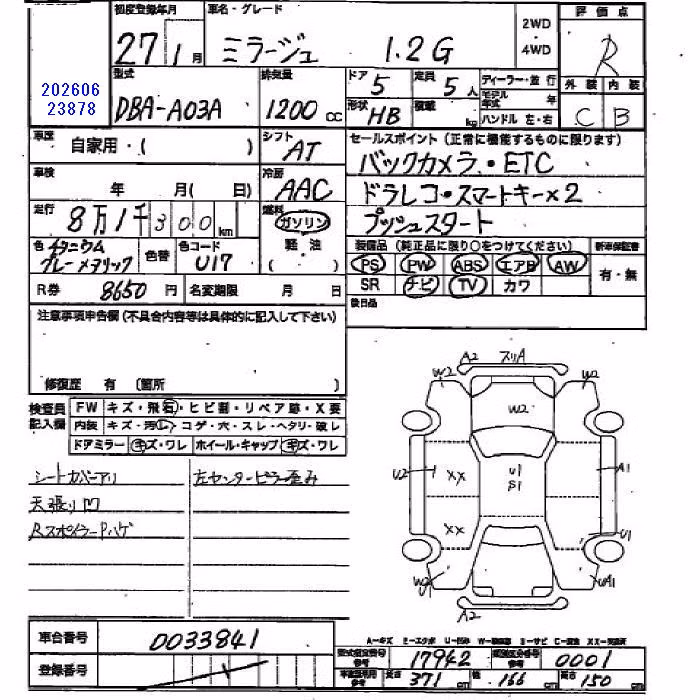 初度登録年月 車名・グレード 2WD 評価点
27 1月 ミラージュ 1.2G 4WD R
型式 排気量 ドア 5 定員 5人 ディーラー・並行 外装 内装
202606 DBA-A03A 1200 CC 形状 HB 積載 kg モデル年式 年 C B
23878 ハンドル 左・右
車歴 自家用・( ) シフト AT セールスポイント (正常に機能するものに限ります)
車検 年 月( 日) 冷房 AAC バックカメラ・ETC
走行 8万1千300km 燃料 ガソリン ドラレコ・スマートキー×2
プッシュスタート
色 チタニウムグレーメタリック 色替 色コード U17 軽油 ( )
装備品 (純正品に限り○をつけてください) 新車保証書
PS PW ABS エアB AW 有・無
SR ナビ TV カワ
R券 8650円 名変期限 月 日 後日品
注意事項申告欄 (不具合内容等は具体的に記入して下さい)
修復歴 有 (箇所 )
検査員記入欄 FW キズ・飛石・ヒビ割・リペア跡・X要
内装 キズ・汚レ・コゲ・穴・スレ・ヘタリ・破レ
ドアミラー キズ・ワレ ホイール・キャップ キズ・ワレ
シートカバーアリ 左センターピラー歪み
天張り凹
RスポイラーPハゲ
A2 スリA
W2 W2
W2
U2 XX U1 A1
S1
XX U1
W1 UA1
A2
車台番号 0033841
A-キズ E-エクボ U-凹み W-補修跡 S-サビ C-腐食 XX-交換済
登録番号
型式指定番号 参考 17942 類別区分番号 参考 0001
車庫証明用 参考 長さ 371 cm 幅 166 cm 高さ 150 cm